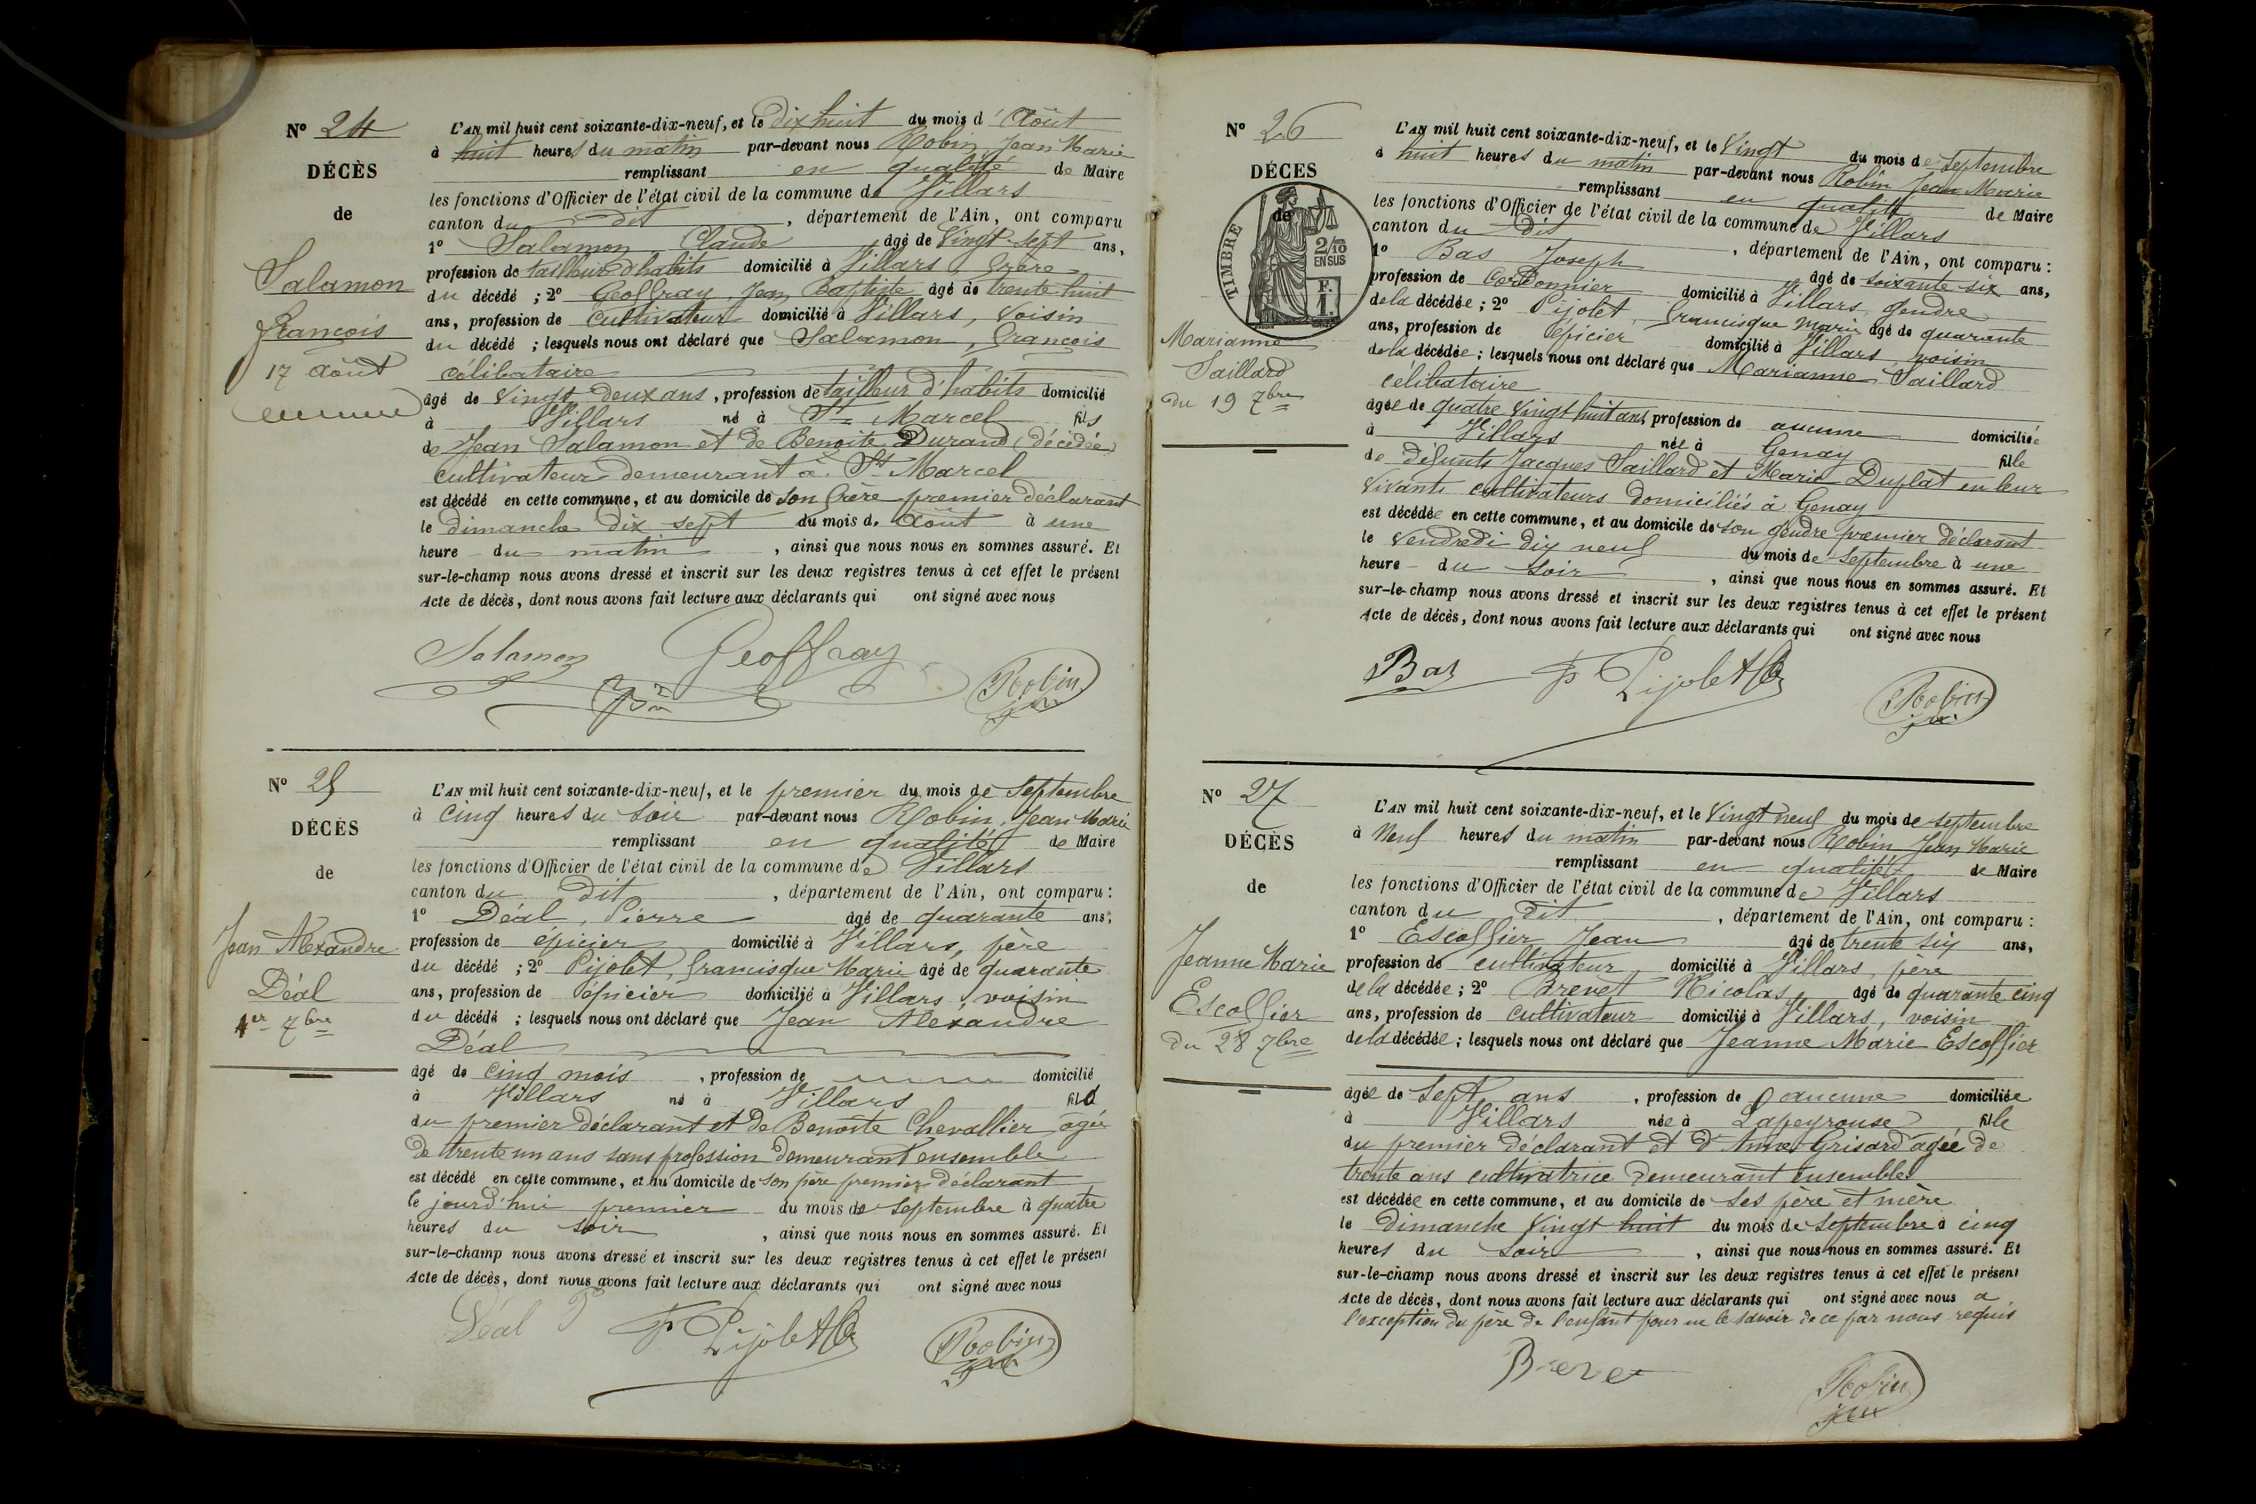 N° 24
DÉCÈS
de
Salamon
François
17 août
L'AN mil huit cent soixante-dix-neuf, et le dix huit du mois d'Août
à huit heures du matin par-devant nous Robin, Jean Marie
remplissant en qualité de Maire
les fonctions d'Officier de l'état civil de la commune de Villars
canton du dit, département de l'Ain, ont comparu
1° Salamon Claude âgé de Vingt-sept ans,
profession de tailleur d'habits domicilié à Villars, frère
du décédé ; 2° Geoffray Jean Baptiste âgé de trente huit
ans, profession de Cultivateur domicilié à Villars, voisin
du décédé ; lesquels nous ont déclaré que Salamon, François
célibataire
âgé de Vingt deux ans, profession de tailleur d'habits domicilié
à Villars né à St Marcel fils
de Jean Salamon et de Benoite Durand (décédée)
Cultivateur demeurant à St Marcel
est décédé en cette commune, et au domicile de son frère premier déclarant
le dimanche dix sept du mois d'Août à une
heure du matin, ainsi que nous nous en sommes assuré. Et
sur-le-champ nous avons dressé et inscrit sur les deux registres tenus à cet effet le présent
Acte de décès, dont nous avons fait lecture aux déclarants qui ont signé avec nous
Salamon Geoffray Robin
N° 25
DÉCÈS
de
Jean Aléxandre
Déal
1er 7bre
L'AN mil huit cent soixante-dix-neuf, et le premier du mois de Septembre
à cinq heures du soir par-devant nous Robin, Jean Marie
remplissant en qualité de Maire
les fonctions d'Officier de l'état civil de la commune de Villars
canton du dit, département de l'Ain, ont comparu :
1° Déal, Pierre âgé de quarante ans,
profession de épicier domicilié à Villars, père
du décédé ; 2° Pijolet, Francisque Marie âgé de quarante
ans, profession de épicier domicilié à Villars, voisin
du décédé ; lesquels nous ont déclaré que Jean Aléxandre
Déal
âgé de cinq mois, profession de domicilié
à Villars né à Villars fils
du premier déclarant et de Benoite Chevallier agée
de trente un ans sans profession demeurant ensemble
est décédé en cette commune, et au domicile de son père premier déclarant
le jourd'hui premier du mois de Septembre à quatre
heures du soir, ainsi que nous nous en sommes assuré. Et
sur-le-champ nous avons dressé et inscrit sur les deux registres tenus à cet effet le présent
Acte de décès, dont nous avons fait lecture aux déclarants qui ont signé avec nous
Déal P F Pijolet Robin
N° 26
DÉCES
de
TIMBRE
2/10
EN SUS
F.
1.
Marianne
Saillard
du 19 7bre
L'AN mil huit cent soixante-dix-neuf, et le Vingt du mois de Septembre
à huit heures du matin par-devant nous Robin Jean Marie
remplissant en qualité de Maire
les fonctions d'Officier de l'état civil de la commune de Villars
canton du dit, département de l'Ain, ont comparu :
1° Bas Joseph âgé de soixante six ans,
profession de Cordonnier domicilié à Villars, gendre
de la décédée ; 2° Pijolet, Francisque Marie âgé de quarante
ans, profession de épicier domicilié à Villars voisin
de la décédée ; lesquels nous ont déclaré que Marianne Saillard
célibataire
âgée de quatre Vingt huit ans, profession de aucune domiciliée
à Villars née à Genay fille
de défunts Jacques Saillard et Marie Duplat en leur
vivants cultivateurs domiciliés à Genay
est décédée en cette commune, et au domicile de son gendre premier déclarant
le Vendredi dix neuf du mois de Septembre à une
heure du soir, ainsi que nous nous en sommes assuré. Et
sur-le-champ nous avons dressé et inscrit sur les deux registres tenus à cet effet le présent
Acte de décès, dont nous avons fait lecture aux déclarants qui ont signé avec nous
Bas F Pijolet Robin
N° 27
DÉCÈS
de
Jeanne Marie
Escoffier
du 28 7bre
L'AN mil huit cent soixante-dix-neuf, et le Vingt neuf du mois de septembre
à Neuf heures du matin par-devant nous Robin Jean Marie
remplissant en qualité de Maire
les fonctions d'Officier de l'état civil de la commune de Villars
canton du dit, département de l'Ain, ont comparu :
1° Escoffier Jean âgé de trente six ans,
profession de cultivateur domicilié à Villars, père
de la décédée ; 2° Brevet Nicolas, âgé de quarante cinq
ans, profession de Cultivateur domicilié à Villars, voisin
de la décédée ; lesquels nous ont déclaré que Jeanne Marie Escoffier
âgée de Sept ans, profession de aucune domiciliée
à Villars née à Lapeyrouse fille
du premier déclarant et d'Anne Grisard agée de
trente ans cultivatrice demeurant ensemble
est décédée en cette commune, et au domicile de ses père et mère
le Dimanche Vingt huit du mois de Septembre à cinq
heures du soir, ainsi que nous nous en sommes assuré. Et
sur-le-champ nous avons dressé et inscrit sur les deux registres tenus à cet effet le présent
Acte de décès, dont nous avons fait lecture aux déclarants qui ont signé avec nous a
l'exception du père de l'enfant pour ne le savoir de ce par nous requis
Brevet Robin